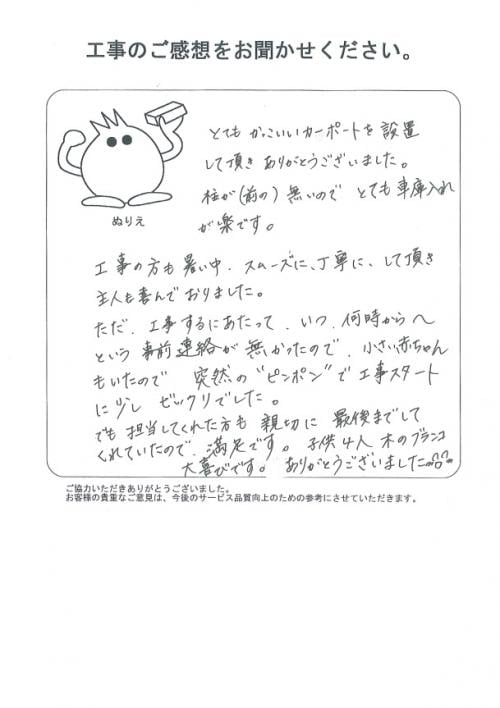 工事のご感想をお聞かせください。
とても かっこいいカーポートを設置
して頂き ありがとうございました。
柱が(前の) 無いので とても車庫入れ
が楽です。
ぬりえ
工事の方も暑い中、スムーズに、丁寧に、して頂き
主人も喜んでおりました。
ただ、工事するにあたって、いつ、何時から〜
という 事前連絡が 無かったので、小さい赤ちゃん
もいたので 突然の "ピンポン" で工事スタート
に少し ビックリでした。
でも 担当してくれた方も 親切に 最後までして
くれていたので、満足です。 子供4人 木のブランコ
大喜びです。 ありがとうございました
ご協力いただきありがとうございました。
お客様の貴重なご意見は、今後のサービス品質向上のための参考にさせていただきます。